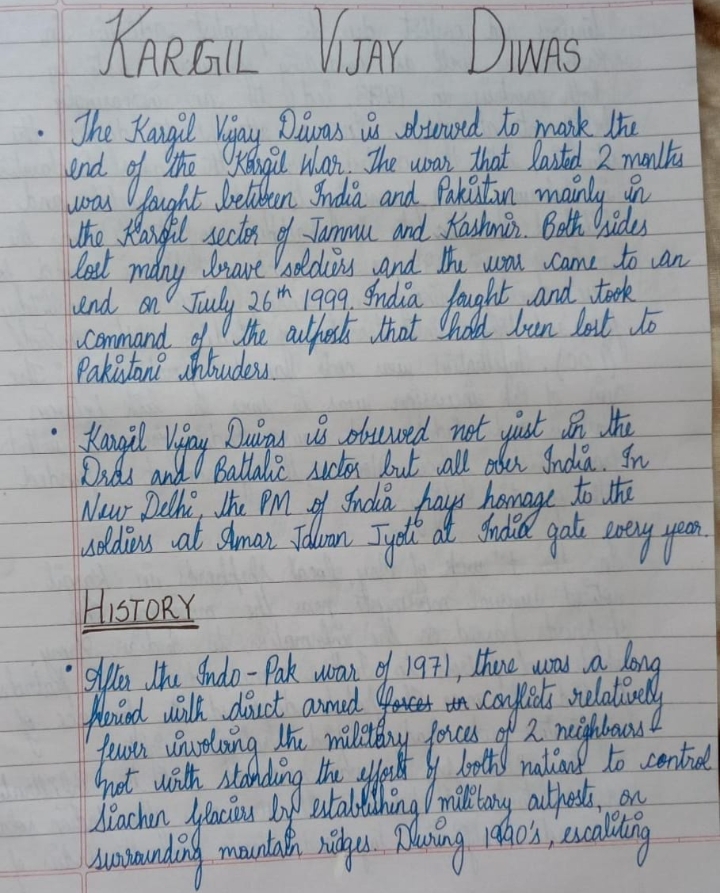 KARGIL VIJAY DIWAS
• The Kargil Vijay Diwas is observed to mark the
end of the Kargil War. The war that lasted 2 months
was fought between India and Pakistan mainly in
the Kargil sector of Jammu and Kashmir. Both sides
lost many brave soldiers and the war came to an
end on July 26th 1999. India fought and took
command of the outposts that had been lost to
Pakistani intruders.
• Kargil Vijay Diwas is observed not just in the
Dras and Battalic sector but all over India. In
New Delhi, the PM of India pays homage to the
soldiers at Amar Jawan Jyoti at India gate every year.
HISTORY
• After the Indo-Pak war of 1971, there was a long
period with direct armed forces in conflicts relatively
fewer involving the military forces of 2 neighbours -
not with standing the effort of both nations to control
siachen glaciers by establishing military outposts, on
surrounding mountain ridges. During 1990's, escaliting